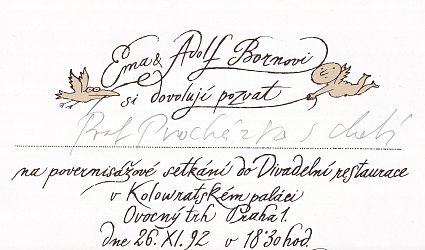 Ema & Adolf Bornovi
si dovolují pozvat
Prof Procházka s chotí
na povernisážové setkání do Divadelní restaurace
v Kolowratském paláci
Ovocný trh Praha 1.
dne 26. XI. 92 v 18'30 hod